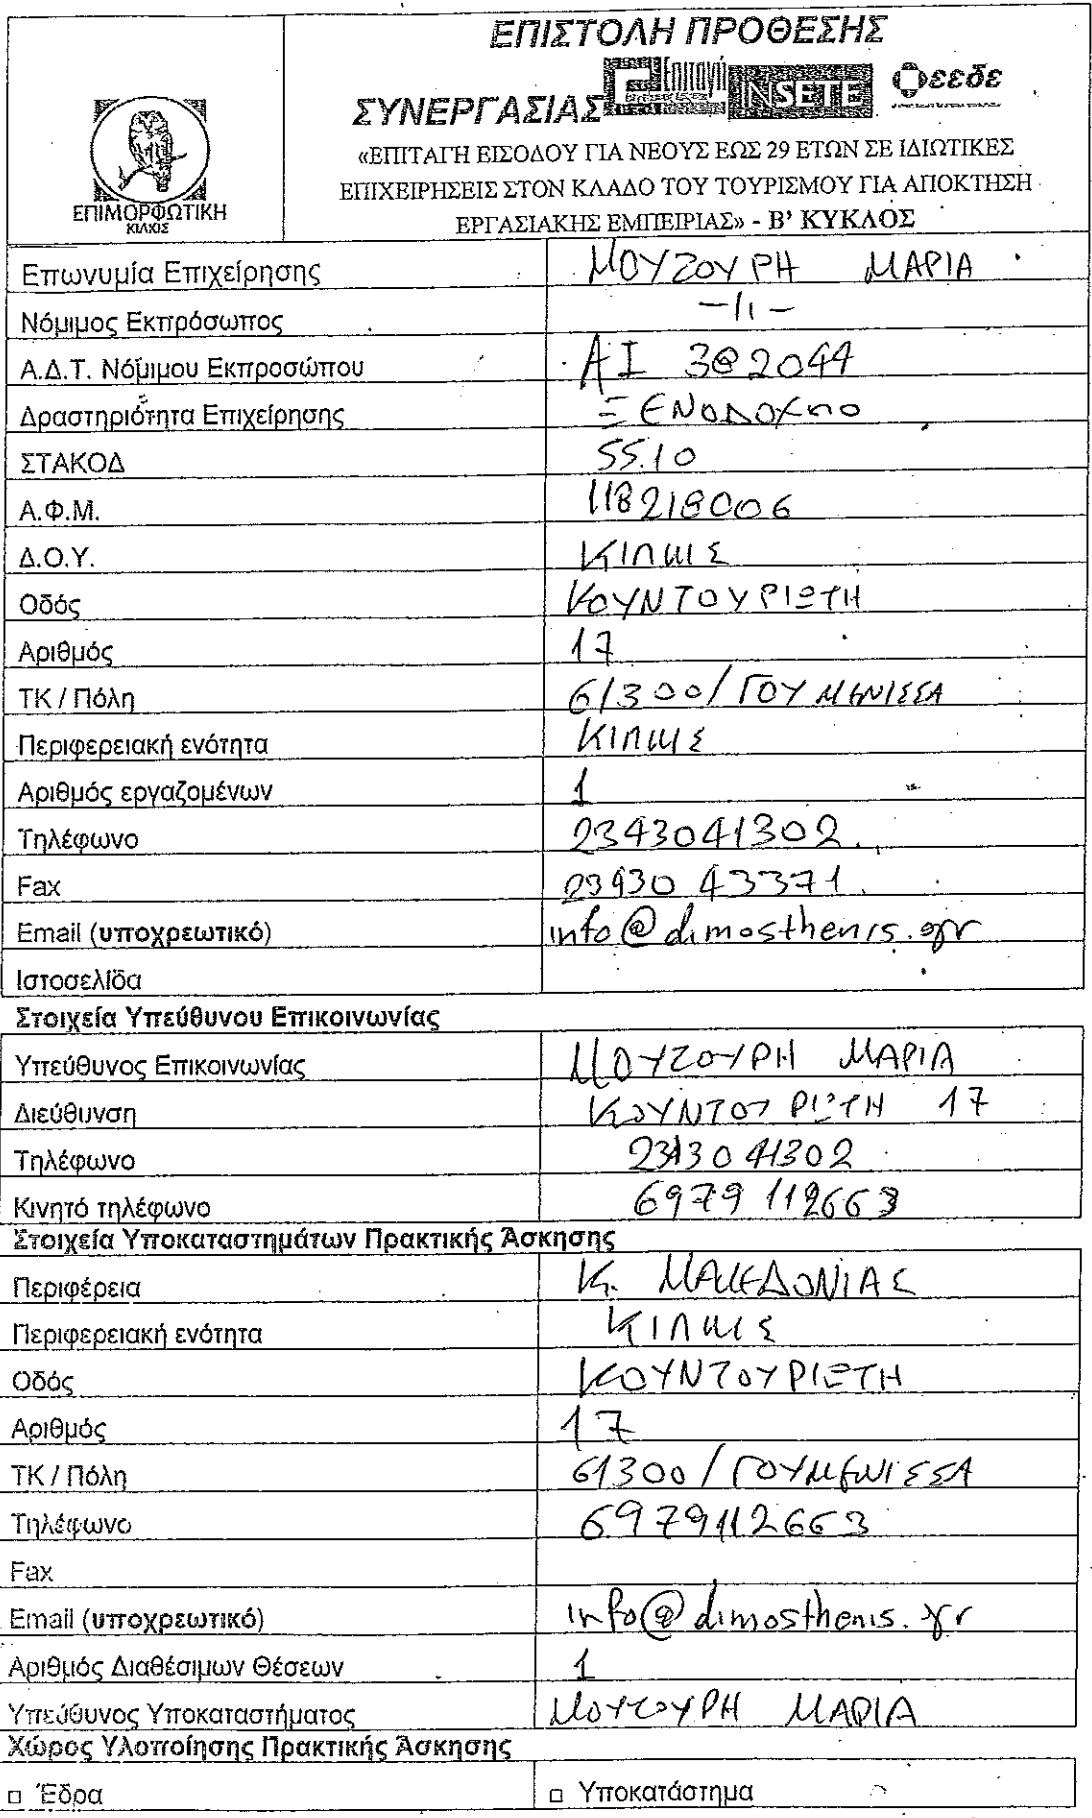 ΕΠΙΣΤΟΛΗ ΠΡΟΘΕΣΗΣ
ΣΥΝΕΡΓΑΣΙΑΣ Επιταγή INSETE εεδε
ΕΠΙΜΟΡΦΩΤΙΚΗ
ΚΙΛΚΙΣ
«ΕΠΙΤΑΓΗ ΕΙΣΟΔΟΥ ΓΙΑ ΝΕΟΥΣ ΕΩΣ 29 ΕΤΩΝ ΣΕ ΙΔΙΩΤΙΚΕΣ
ΕΠΙΧΕΙΡΗΣΕΙΣ ΣΤΟΝ ΚΛΑΔΟ ΤΟΥ ΤΟΥΡΙΣΜΟΥ ΓΙΑ ΑΠΟΚΤΗΣΗ
ΕΡΓΑΣΙΑΚΗΣ ΕΜΠΕΙΡΙΑΣ» - Β' ΚΥΚΛΟΣ
Επωνυμία Επιχείρησης ΜΟΥΖΟΥΡΗ ΜΑΡΙΑ
Νόμιμος Εκπρόσωπος -//-
Α.Δ.Τ. Νόμιμου Εκπροσώπου ΑΙ 382044
Δραστηριότητα Επιχείρησης ΞΕΝΟΔΟΧΕΙΟ
ΣΤΑΚΟΔ 55.10
Α.Φ.Μ. 118218006
Δ.Ο.Υ. ΚΙΛΚΙΣ
Οδός ΚΟΥΝΤΟΥΡΙΩΤΗ
Αριθμός 17
ΤΚ / Πόλη 61300/ ΓΟΥΜΕΝΙΣΣΑ
Περιφερειακή ενότητα ΚΙΛΚΙΣ
Αριθμός εργαζομένων 1
Τηλέφωνο 2343041302
Fax 23430 43371
Email (υποχρεωτικό) info@dimosthenis.gr
Ιστοσελίδα
Στοιχεία Υπεύθυνου Επικοινωνίας
Υπεύθυνος Επικοινωνίας ΜΟΥΖΟΥΡΗ ΜΑΡΙΑ
Διεύθυνση ΚΟΥΝΤΟΥΡΙΩΤΗ 17
Τηλέφωνο 23430 41302
Κινητό τηλέφωνο 6979 112663
Στοιχεία Υποκαταστημάτων Πρακτικής Άσκησης
Περιφέρεια Κ. ΜΑΚΕΔΟΝΙΑΣ
Περιφερειακή ενότητα ΚΙΛΚΙΣ
Οδός ΚΟΥΝΤΟΥΡΙΩΤΗ
Αριθμός 17
ΤΚ / Πόλη 61300 / ΓΟΥΜΕΝΙΣΣΑ
Τηλέφωνο 6979112663
Fax
Email (υποχρεωτικό) info@dimosthenis.gr
Αριθμός Διαθέσιμων Θέσεων 1
Υπεύθυνος Υποκαταστήματος ΜΟΥΖΟΥΡΗ ΜΑΡΙΑ
Χώρος Υλοποίησης Πρακτικής Άσκησης
□ Έδρα □ Υποκατάστημα